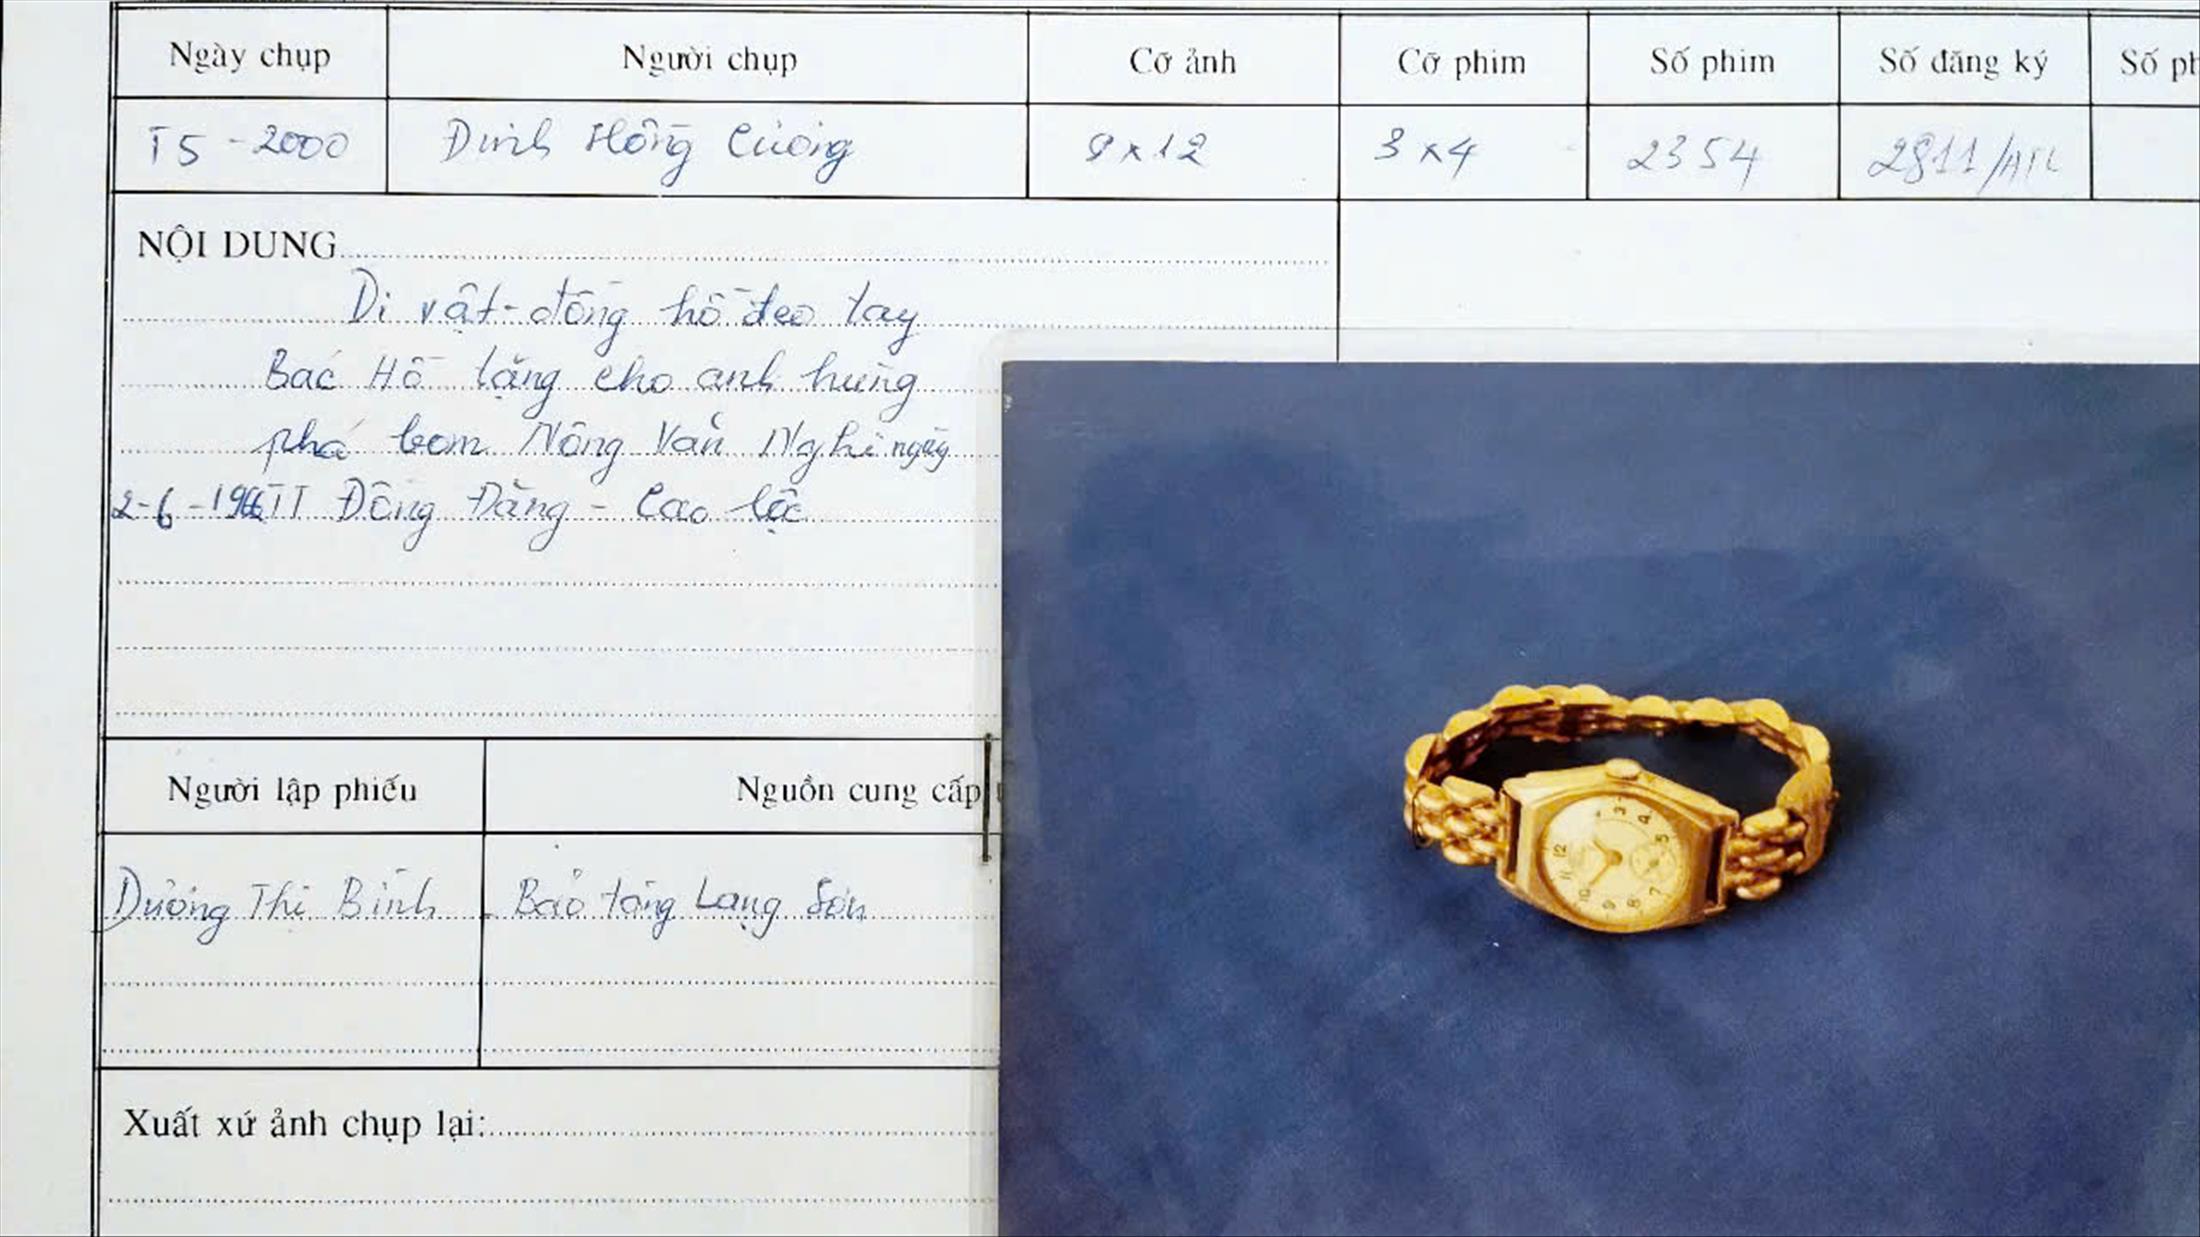 Ngày chụp Người chụp Cỡ ảnh Cỡ phim Số phim Số đăng ký Số ph
T5 - 2000 Đinh Hồng Cường 9 x 12 3 x 4 2354 2811/
NỘI DUNG
Di vật - đồng hồ đeo tay
Bác Hồ tặng cho anh hùng
phá bom Nông Văn Nghi ngày
2-6-1966 TT Đồng Đăng - Cao Lộc
Người lập phiếu Nguồn cung cấp
Dương Thị Bính Bảo tàng Lạng Sơn
Xuất xứ ảnh chụp lại:
12 3 4 5 7 8 9 10 11